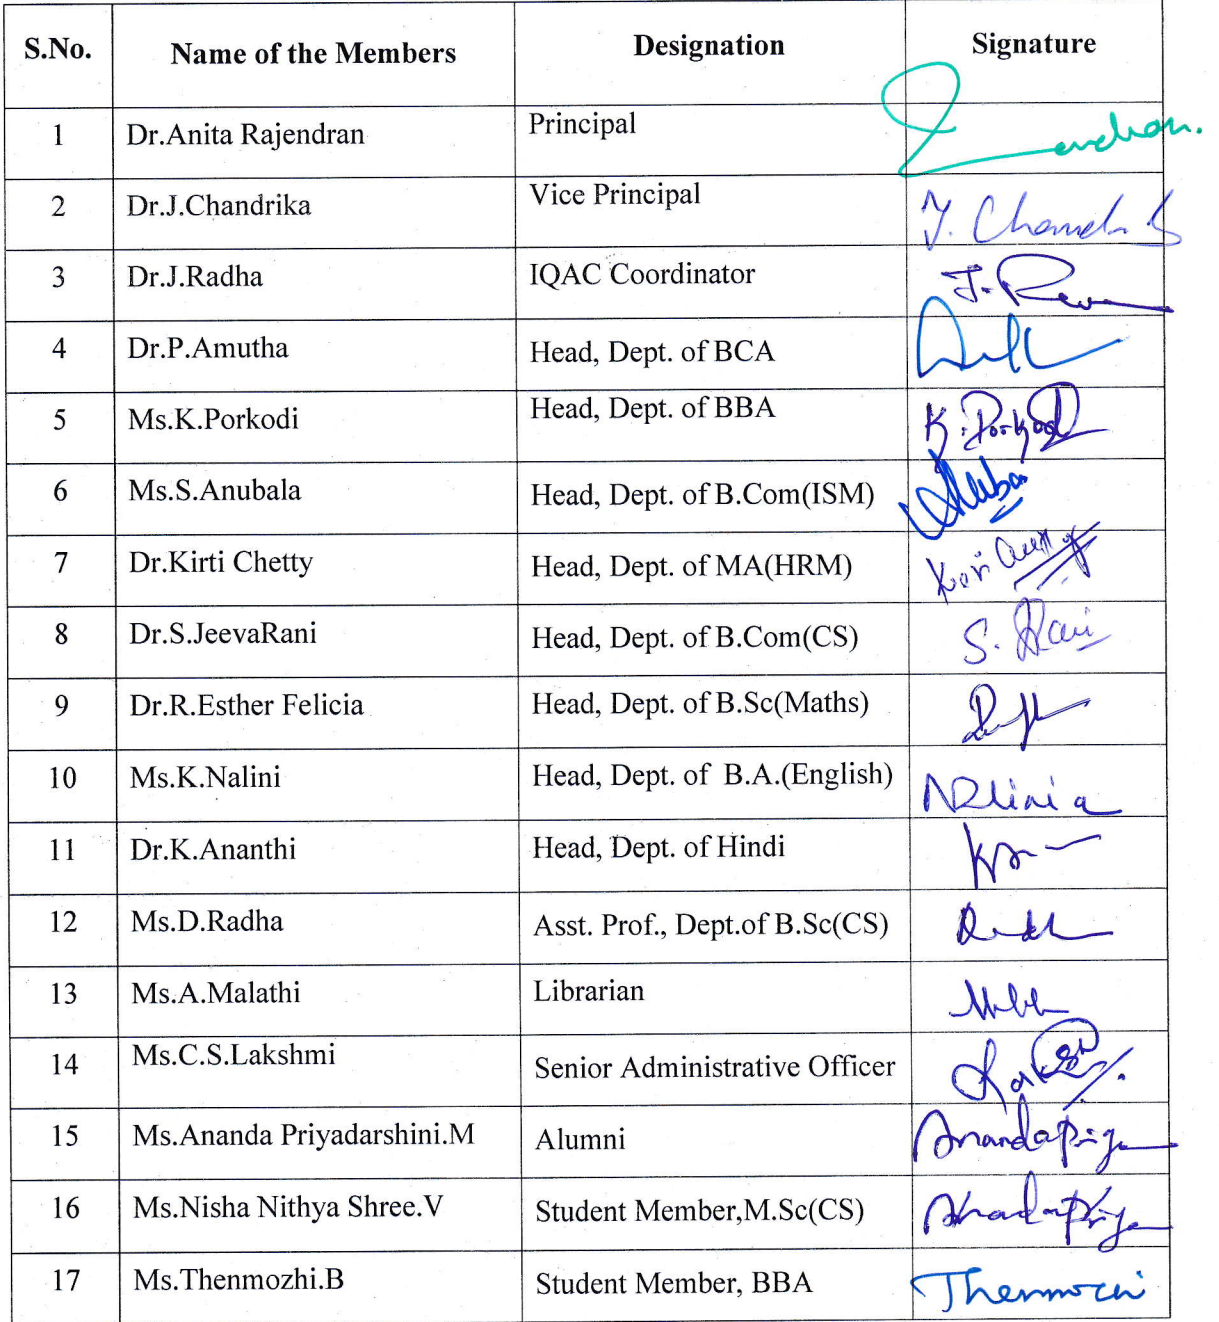 S.No. Name of the Members Designation Signature
1 Dr.Anita Rajendran Principal
2 Dr.J.Chandrika Vice Principal J. Chand
3 Dr.J.Radha IQAC Coordinator J.
4 Dr.P.Amutha Head, Dept. of BCA
5 Ms.K.Porkodi Head, Dept. of BBA K. Porkodi
6 Ms.S.Anubala Head, Dept. of B.Com(ISM)
7 Dr.Kirti Chetty Head, Dept. of MA(HRM)
8 Dr.S.JeevaRani Head, Dept. of B.Com(CS) S. Rani
9 Dr.R.Esther Felicia Head, Dept. of B.Sc(Maths)
10 Ms.K.Nalini Head, Dept. of B.A.(English)
11 Dr.K.Ananthi Head, Dept. of Hindi
12 Ms.D.Radha Asst. Prof., Dept.of B.Sc(CS)
13 Ms.A.Malathi Librarian
14 Ms.C.S.Lakshmi Senior Administrative Officer
15 Ms.Ananda Priyadarshini.M Alumni Anandapriya
16 Ms.Nisha Nithya Shree.V Student Member,M.Sc(CS)
17 Ms.Thenmozhi.B Student Member, BBA